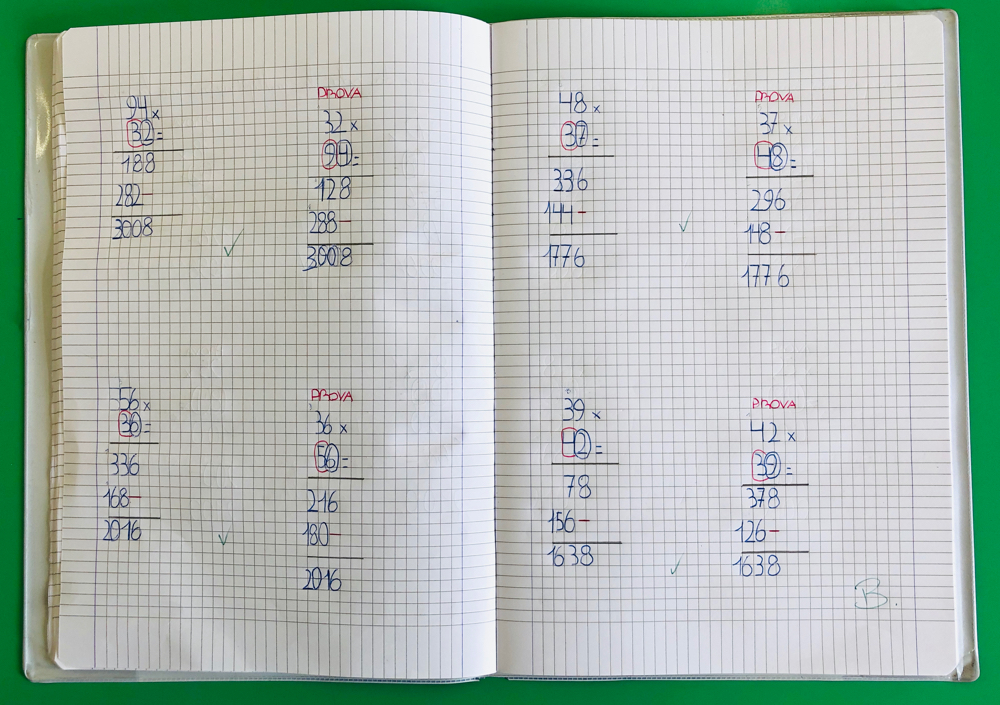 94 x
32 =
188
282-
3008
PROVA
32 x
94 =
128
288-
3008
56 x
36 =
336
168-
2016
PROVA
36 x
56 =
216
180-
2016
48 x
37 =
336
144-
1776
PROVA
37 x
48 =
296
148-
1776
39 x
42 =
78
156-
1638
PROVA
42 x
39 =
378
126-
1638
B.